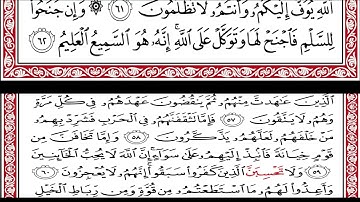 اللَّهِ يُوَفَّ إِلَيْكُمْ وَأَنتُمْ لَا تُظْلَمُونَ ٦١ ۞ وَإِن جَنَحُوا
لِلسَّلْمِ فَاجْنَحْ لَهَا وَتَوَكَّلْ عَلَى اللَّهِ إِنَّهُ هُوَ السَّمِيعُ الْعَلِيمُ ٦٢
الَّذِينَ عَاهَدتَّ مِنْهُمْ ثُمَّ يَنقُضُونَ عَهْدَهُمْ فِي كُلِّ مَرَّةٍ
وَهُمْ لَا يَتَّقُونَ ٥٧ فَإِمَّا تَثْقَفَنَّهُمْ فِي الْحَرْبِ فَشَرِّدْ بِهِم
مَّنْ خَلْفَهُمْ لَعَلَّهُمْ يَذَّكَّرُونَ ٥٨ وَإِمَّا تَخَافَنَّ مِن
قَوْمٍ خِيَانَةً فَانبِذْ إِلَيْهِمْ عَلَىٰ سَوَاءٍ إِنَّ اللَّهَ لَا يُحِبُّ الْخَائِنِينَ
٥٩ وَلَا تَحْسِبَنَّ الَّذِينَ كَفَرُوا سَبَقُوا إِنَّهُمْ لَا يُعْجِزُونَ ٦٠
وَأَعِدُّوا لَهُم مَّا اسْتَطَعْتُم مِّن قُوَّةٍ وَمِن رِّبَاطِ الْخَيْلِ